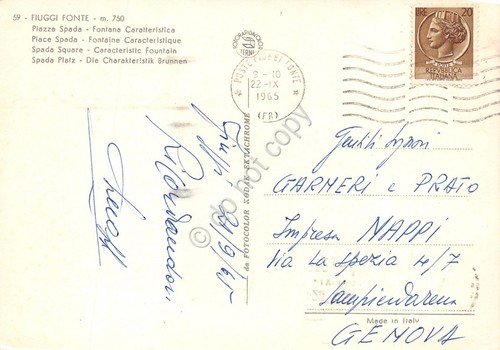 59 - FIUGGI FONTE - m. 750
Piazza Spada - Fontana Caratteristica
Place Spada - Fontaine Caracteristique
Spada Square - Caracteristic Fountain
Spada Platz - Die Charakteristik Brunnen
TERNI
POSTE FIUGGI FONTE
9 - 10
22 - IX
1965
(FR)
LIRE 20
REPVBBLICA
ITALIANA
Fiuggi 21/9/65
Ricordandovi
da FOTOCOLOR KODAK EKTACHROME
Do not copy
Gentili Signori
GARMERI e PRATO
Impresa NAPPI
Via La Spezia 4/7
Sampierdarena
GENOVA
Made in Italy